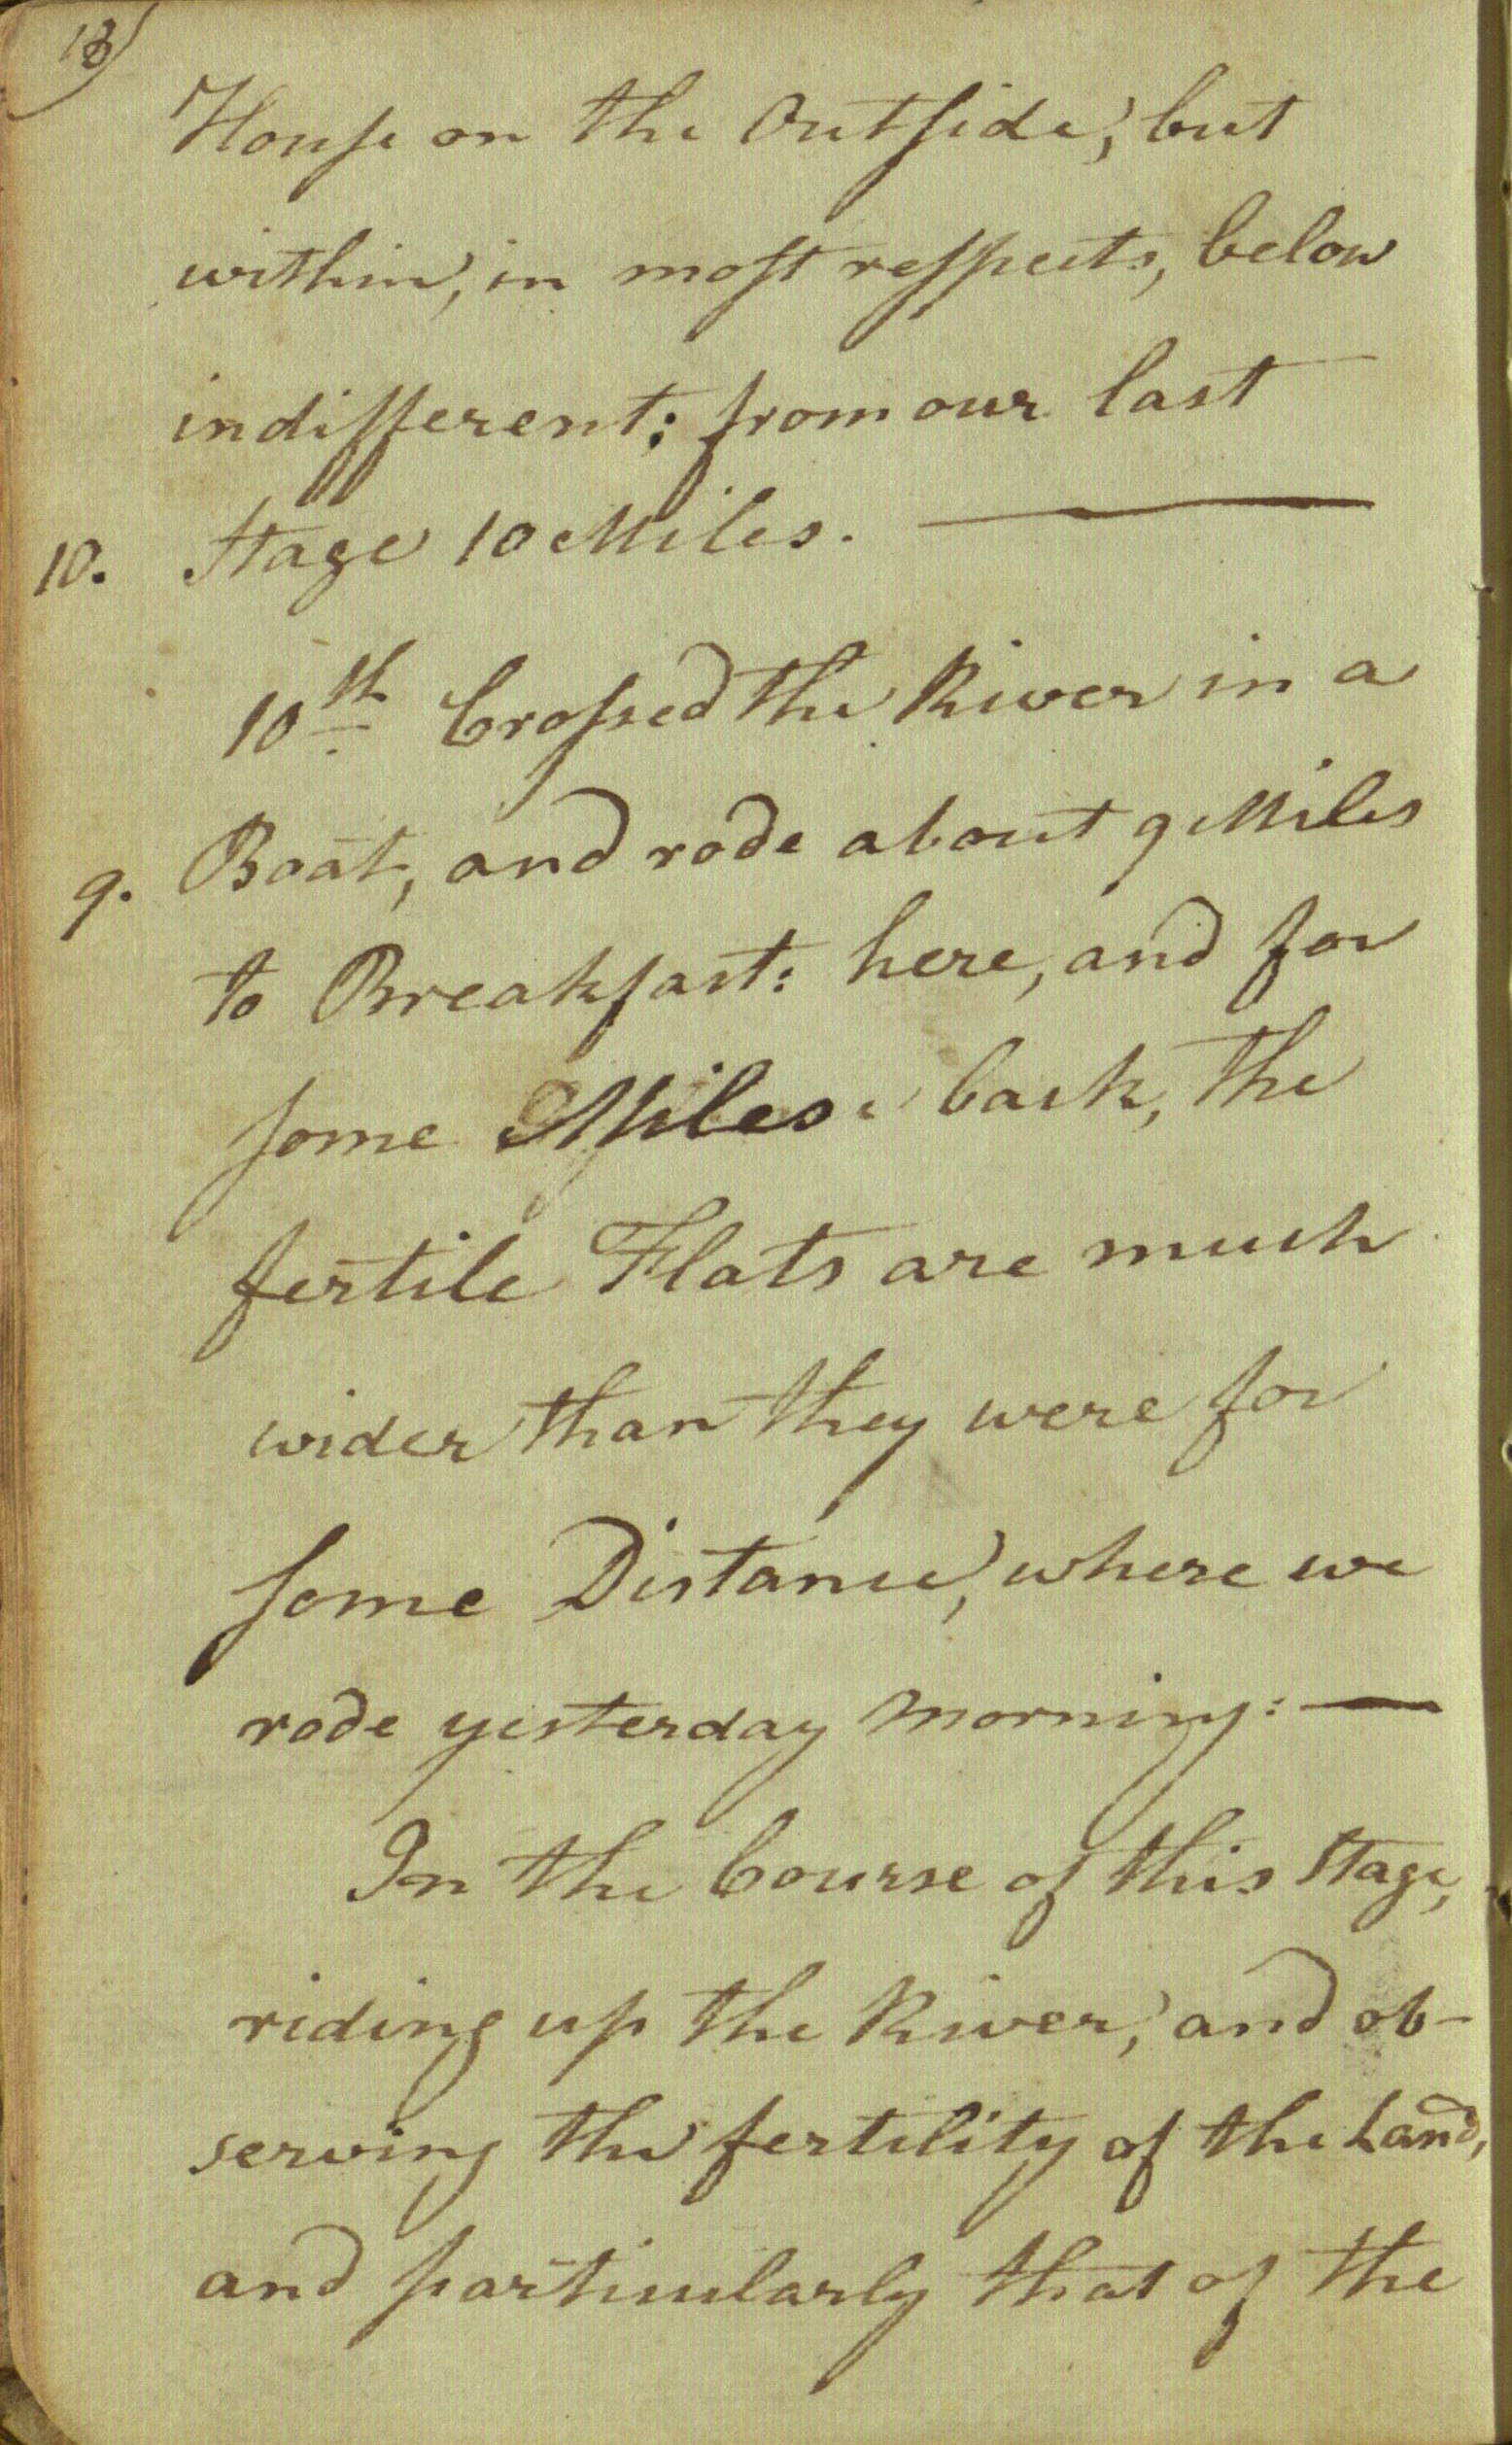 House on the Outside, but
within, in most respects, below
indifferent; from our last
10. Stage 10 Miles. —
10th Crossed the River in a
9. Boat, and rode about 9 Miles
to Breakfast: here, and for
some Miles back, the
fertile Flats are much
wider than they were for
some Distance, where we
rode yesterday morning: —
In the Course of this Stage,
riding up the River, and ob-
serving the fertility of the Land,
and particularly that of the